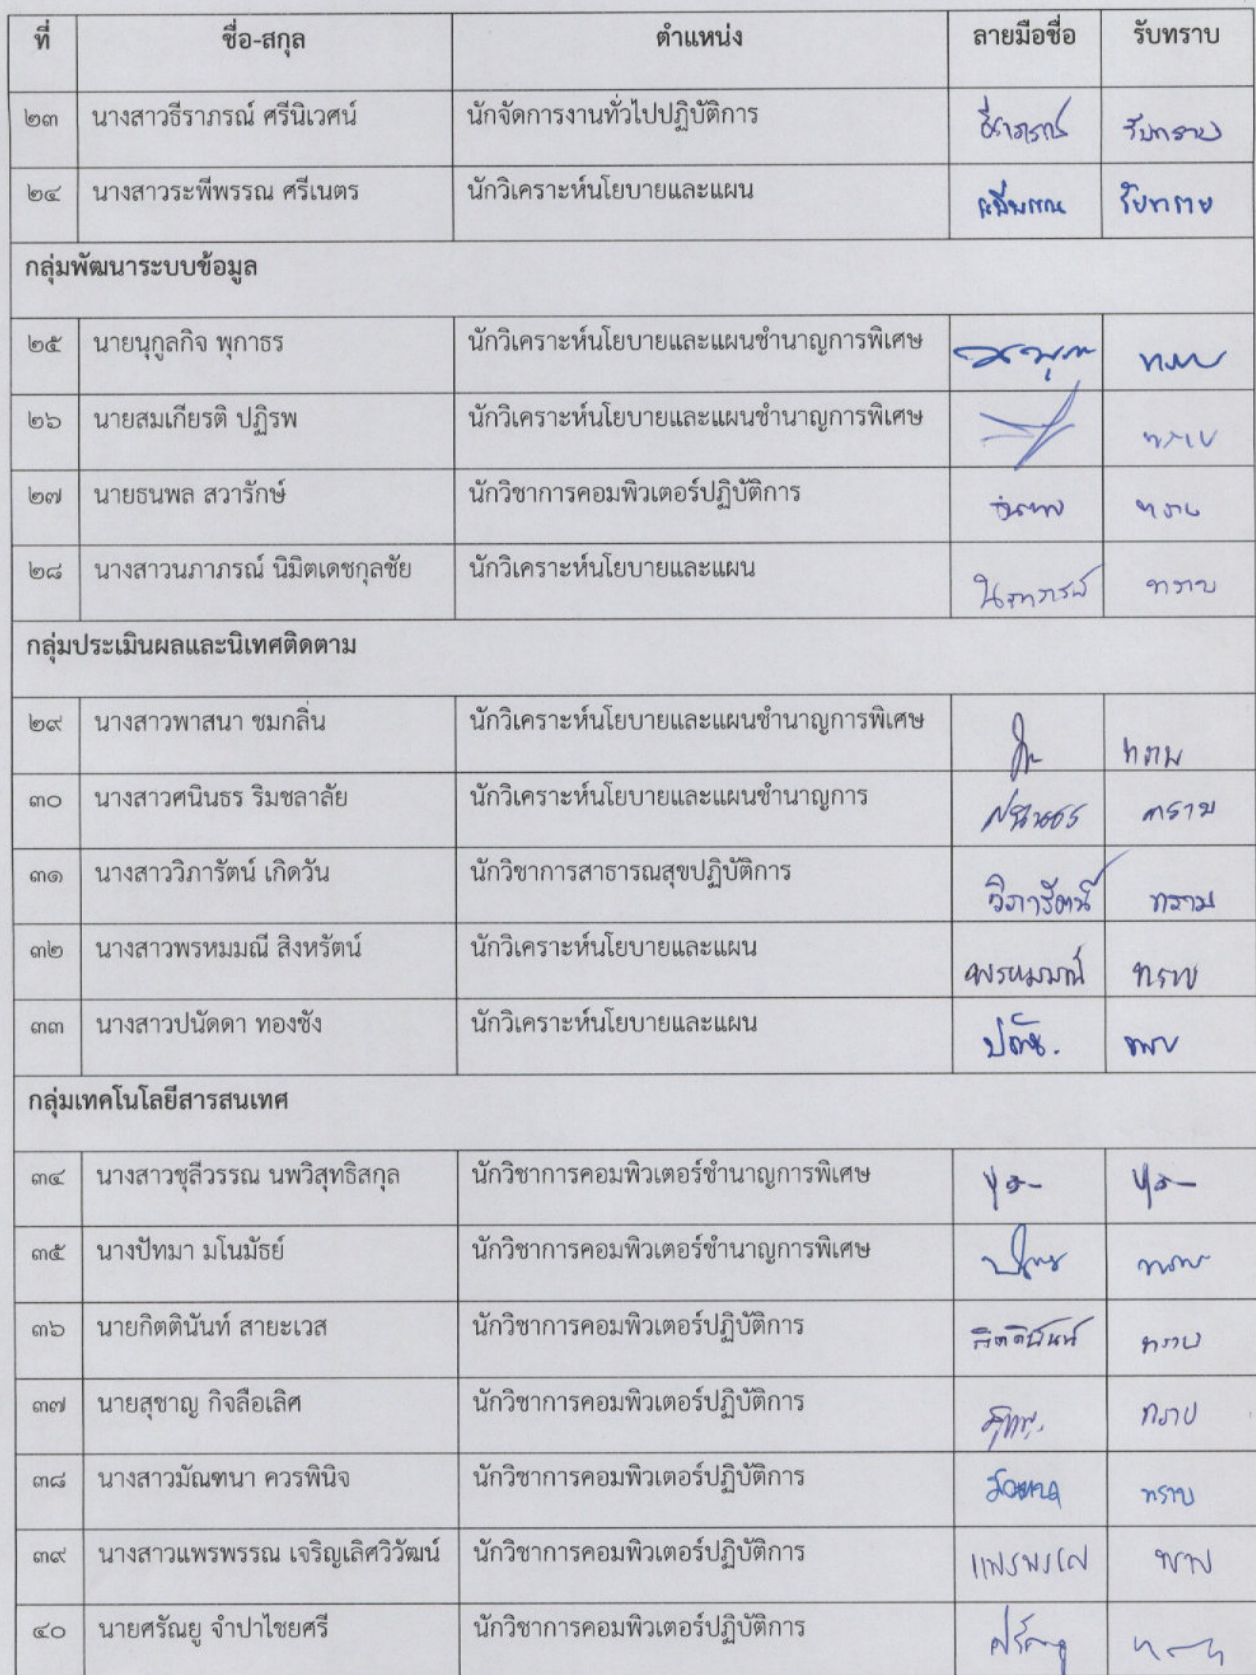 ที่ ชื่อ-สกุล ตำแหน่ง ลายมือชื่อ รับทราบ
๒๓ นางสาวธีราภรณ์ ศรีนิเวศน์ นักจัดการงานทั่วไปปฏิบัติการ ธีราภรณ์ รับทราบ
๒๔ นางสาวระพีพรรณ ศรีเนตร นักวิเคราะห์นโยบายและแผน ระพีพรรณ รับทราบ
กลุ่มพัฒนาระบบข้อมูล
๒๕ นายนุกูลกิจ พุกาธร นักวิเคราะห์นโยบายและแผนชำนาญการพิเศษ ทราบ
๒๖ นายสมเกียรติ ปฏิรพ นักวิเคราะห์นโยบายและแผนชำนาญการพิเศษ ทราบ
๒๗ นายธนพล สวารักษ์ นักวิชาการคอมพิวเตอร์ปฏิบัติการ ธนพล ทราบ
๒๘ นางสาวนภาภรณ์ นิมิตเดชกุลชัย นักวิเคราะห์นโยบายและแผน นภาภรณ์ ทราบ
กลุ่มประเมินผลและนิเทศติดตาม
๒๙ นางสาวพาสนา ชมกลิ่น นักวิเคราะห์นโยบายและแผนชำนาญการพิเศษ ทราบ
๓๐ นางสาวศนินธร ริมชลาลัย นักวิเคราะห์นโยบายและแผนชำนาญการ ศนินธร ทราบ
๓๑ นางสาววิภารัตน์ เกิดวัน นักวิชาการสาธารณสุขปฏิบัติการ วิภารัตน์ ทราบ
๓๒ นางสาวพรหมมณี สิงหรัตน์ นักวิเคราะห์นโยบายและแผน พรหมมณี ทราบ
๓๓ นางสาวปนัดดา ทองชัง นักวิเคราะห์นโยบายและแผน ทราบ
กลุ่มเทคโนโลยีสารสนเทศ
๓๔ นางสาวชุลีวรรณ นพวิสุทธิสกุล นักวิชาการคอมพิวเตอร์ชำนาญการพิเศษ
๓๕ นางปัทมา มโนมัธย์ นักวิชาการคอมพิวเตอร์ชำนาญการพิเศษ ทราบ
๓๖ นายกิตตินันท์ สายะเวส นักวิชาการคอมพิวเตอร์ปฏิบัติการ กิตตินันท์ ทราบ
๓๗ นายสุชาญ กิจลือเลิศ นักวิชาการคอมพิวเตอร์ปฏิบัติการ ทราบ
๓๘ นางสาวมัณฑนา ควรพินิจ นักวิชาการคอมพิวเตอร์ปฏิบัติการ มัณฑนา ทราบ
๓๙ นางสาวแพรพรรณ เจริญเลิศวิวัฒน์ นักวิชาการคอมพิวเตอร์ปฏิบัติการ แพรพรรณ ทราบ
๔๐ นายศรัณยู จำปาไชยศรี นักวิชาการคอมพิวเตอร์ปฏิบัติการ ศรัณยู